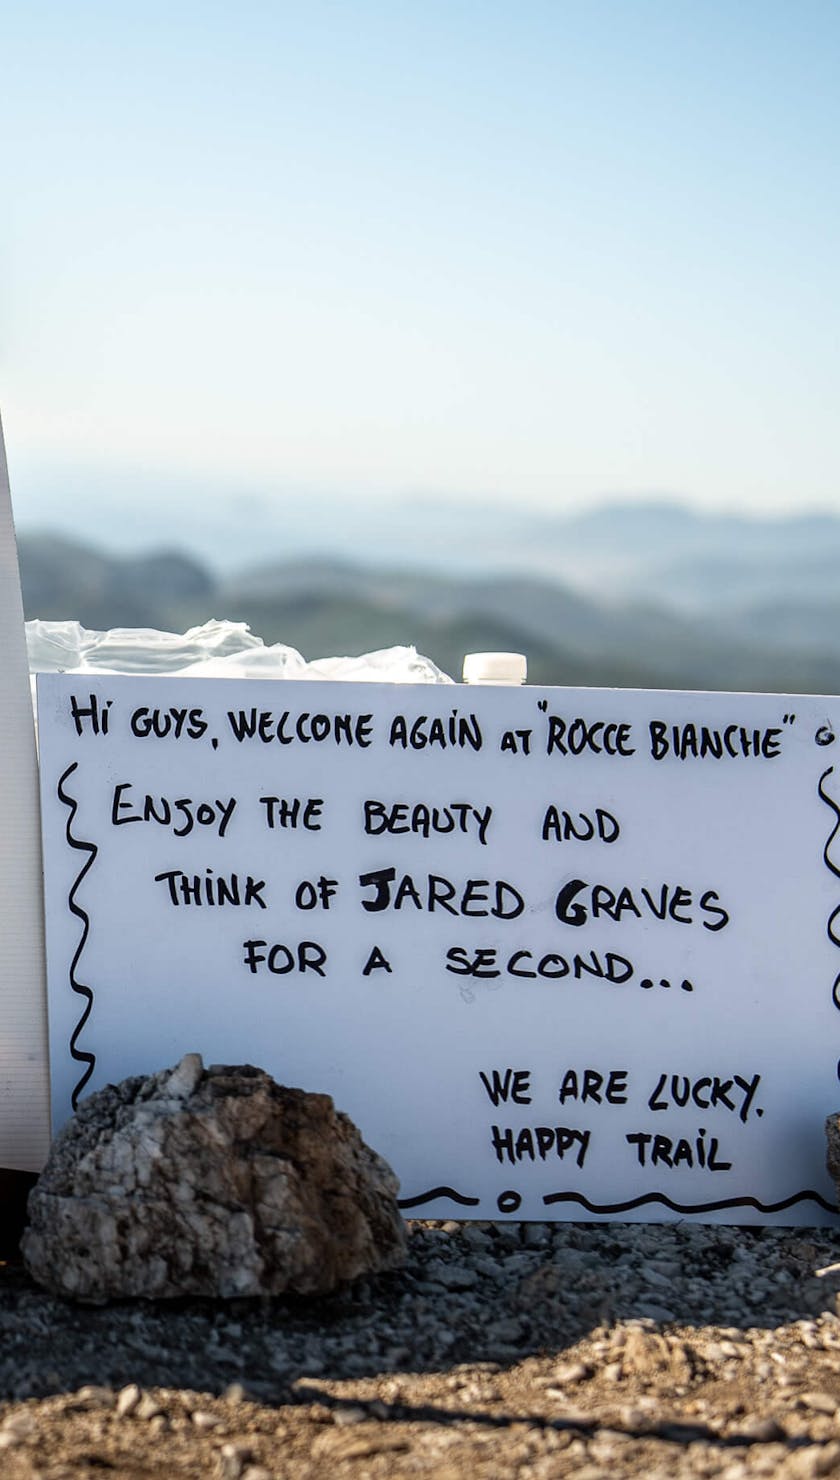 Hi GUYS, WELCOME AGAiN AT "ROCCE BIANCHE"
ENJOY THE BEAUTY AND
THiNK OF JARED GRAVES
FOR A SECOND...
WE ARE LUCKY.
HAPPY TRAiL